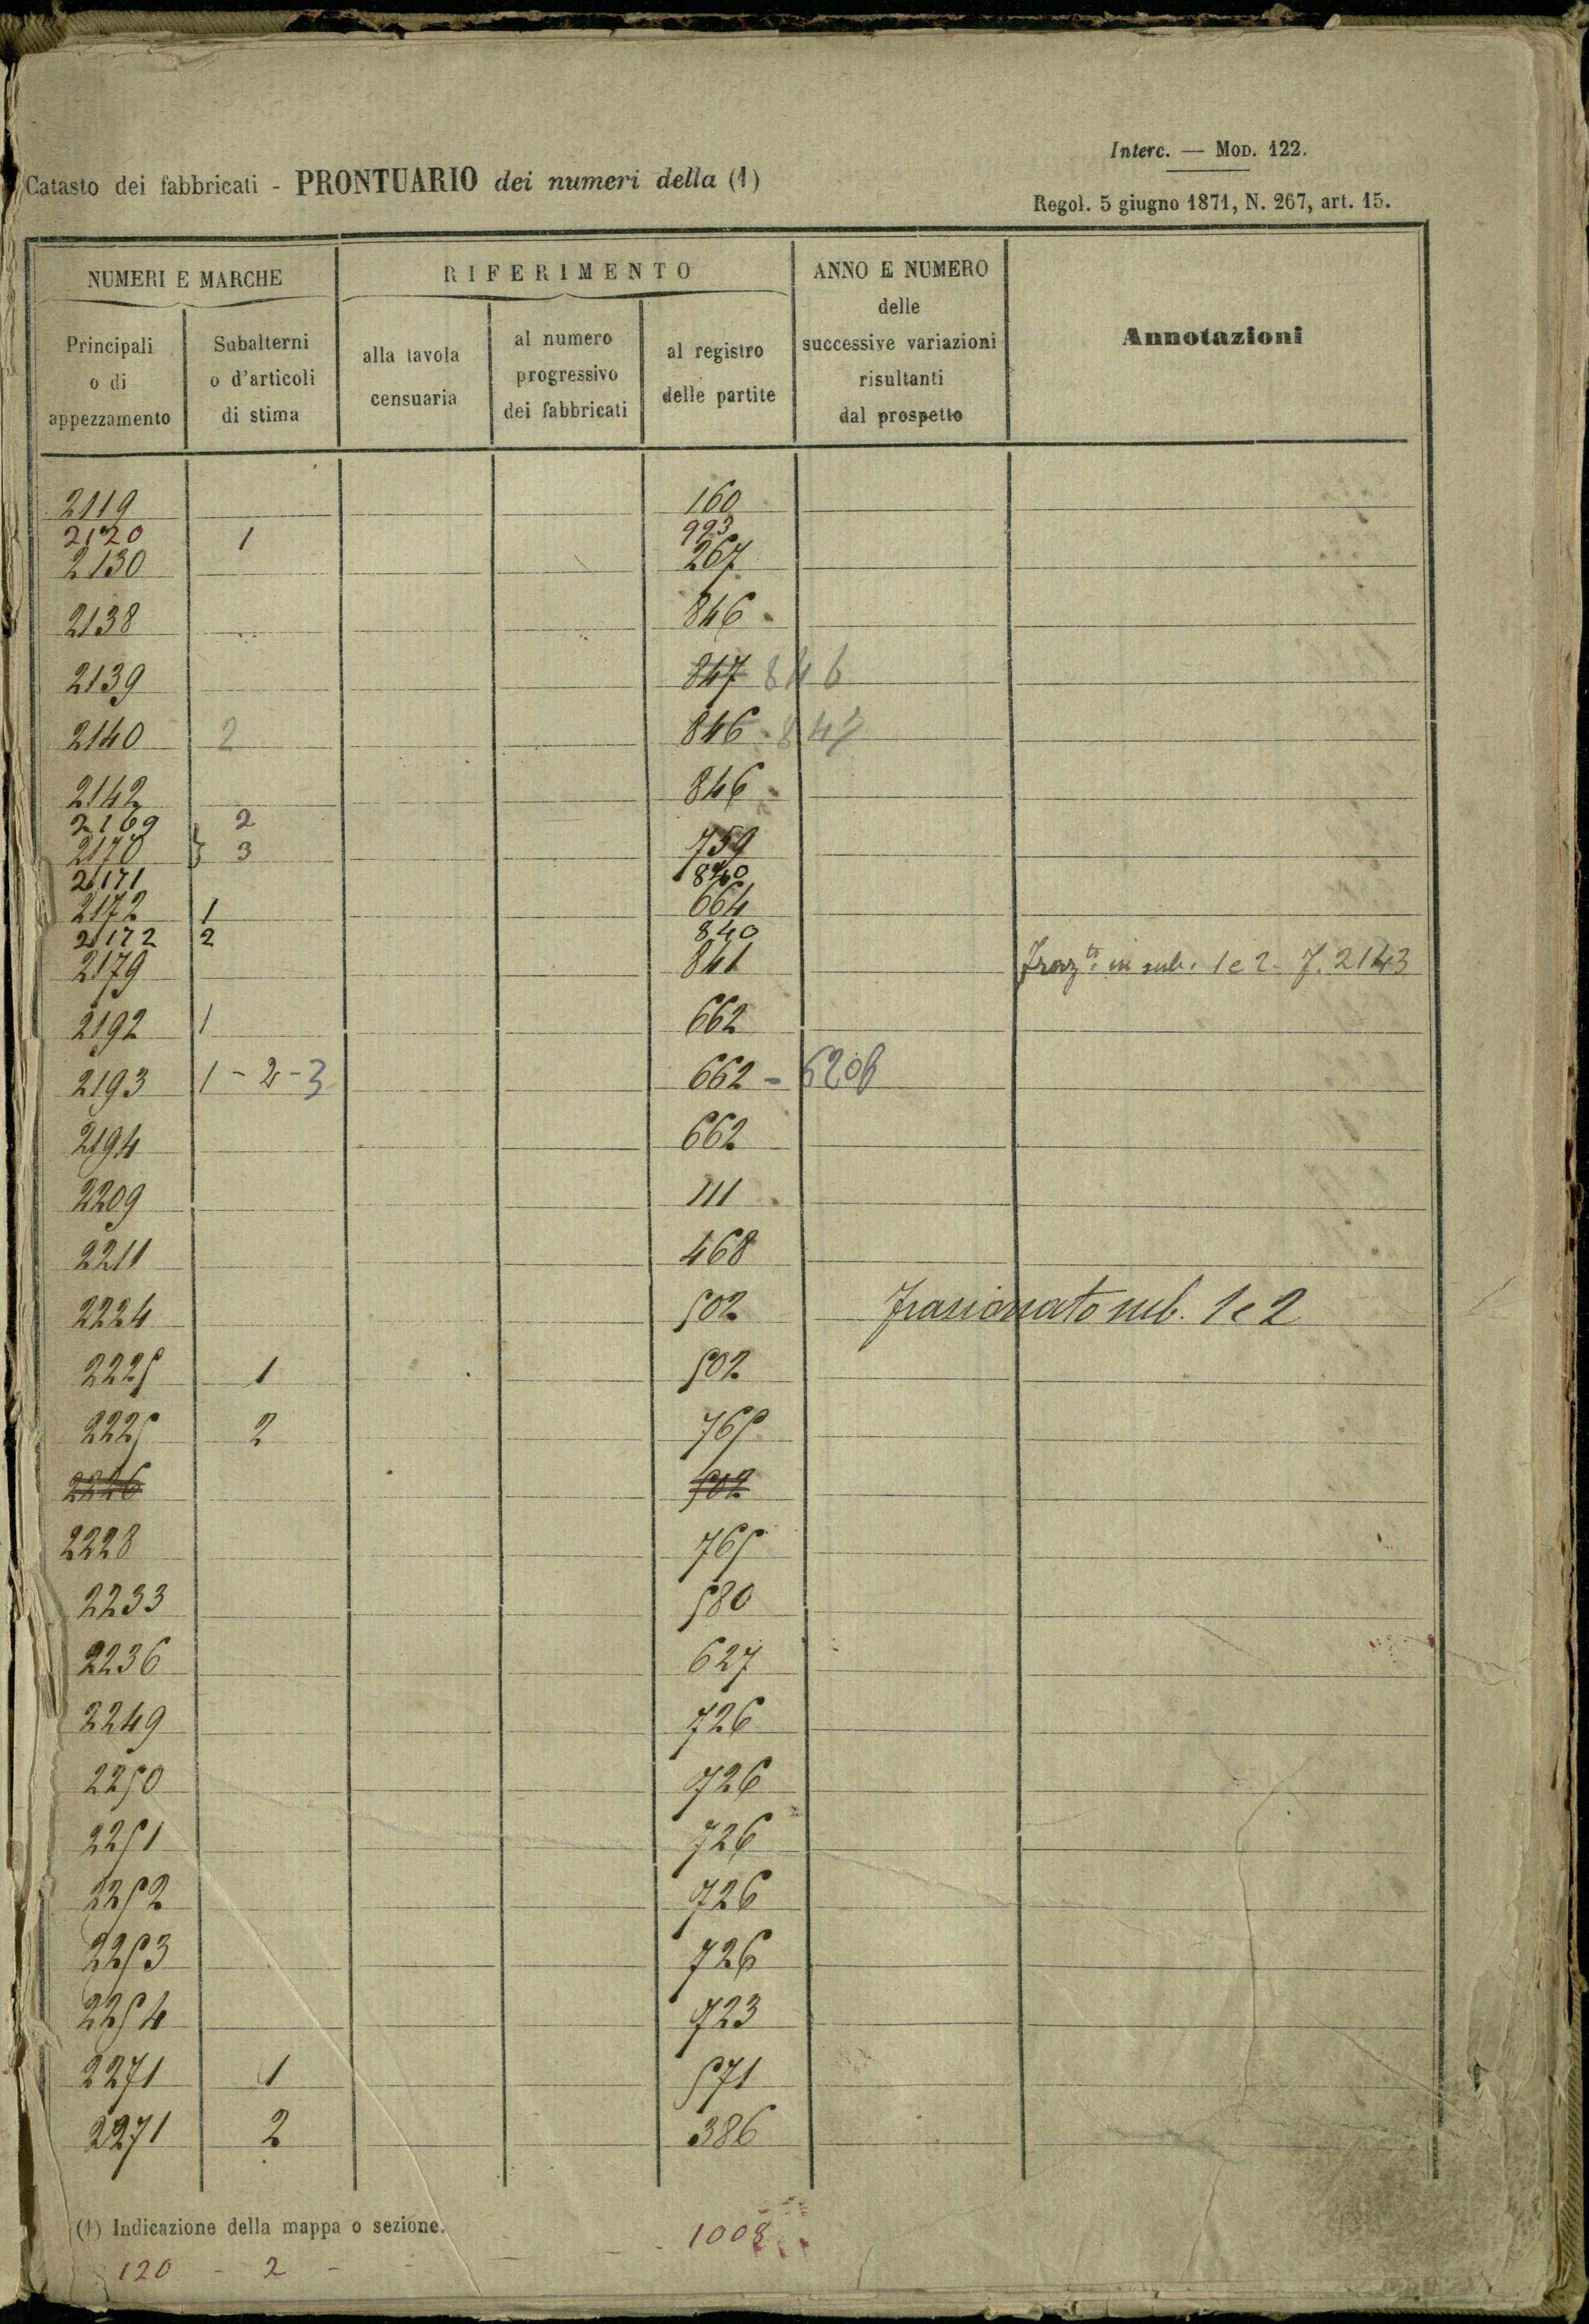 Interc. — Mod. 122.
Catasto dei fabbricati - PRONTUARIO dei numeri della (1)
Regol. 5 giugno 1871, N. 267, art. 15.
NUMERI E MARCHE
RIFERIMENTO
ANNO E NUMERO delle successive variazioni risultanti dal prospetto
Annotazioni
Principali o di appezzamento
Subalterni o d'articoli di stima
alla tavola censuaria
al numero progressivo dei fabbricati
al registro delle partite
2119 160
2120 1 993
2130 267
2138 846
2139 847 846
2140 2 846 847
2142 846
2169 2
2170 } 3 759
2171 840
2172 1 664
2172 2 840
2179 841 in sub. 1 e 2 - 2143
2192 1 662
2193 1 - 2 - 3 662 -
2194 662
2209 111
2211 468
2224 502 frazionato sub. 1 e 2
2225 1 502
2225 2 765
2226 502
2228 765
2233 580
2236 627
2249 726
2250 726
2251 726
2252 726
2253 726
2254 723
2271 1 571
2271 2 386
(1) Indicazione della mappa o sezione.
120 - 2 - - - - 1008